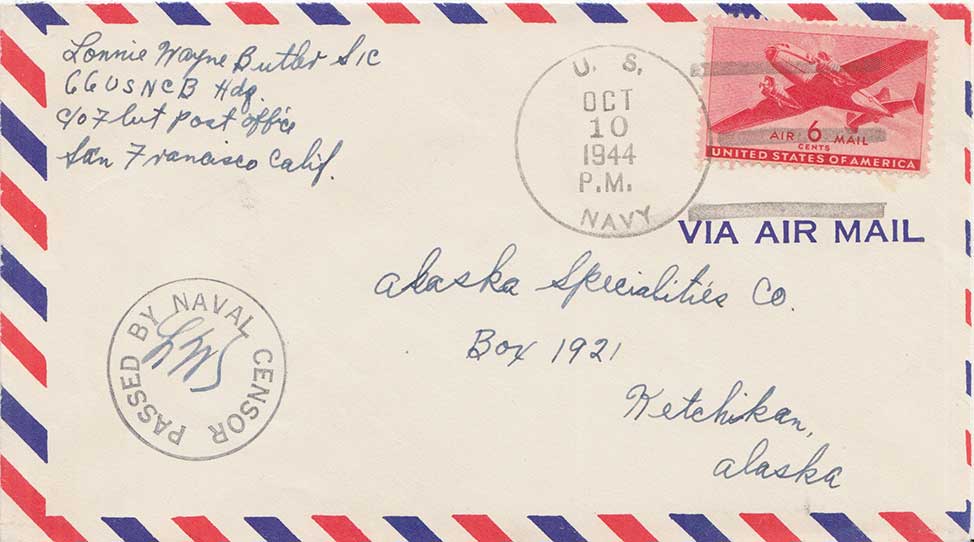 Lonnie Wayne Butler S1C
66 USNCB Hdq.
c/o Fleet Post Office
San Francisco Calif.
U. S.
OCT
10
1944
P.M.
NAVY
AIR 6 MAIL
CENTS
UNITED STATES OF AMERICA
VIA AIR MAIL
Alaska Specialities Co.
Box 1921
Ketchikan,
Alaska
PASSED BY NAVAL CENSOR